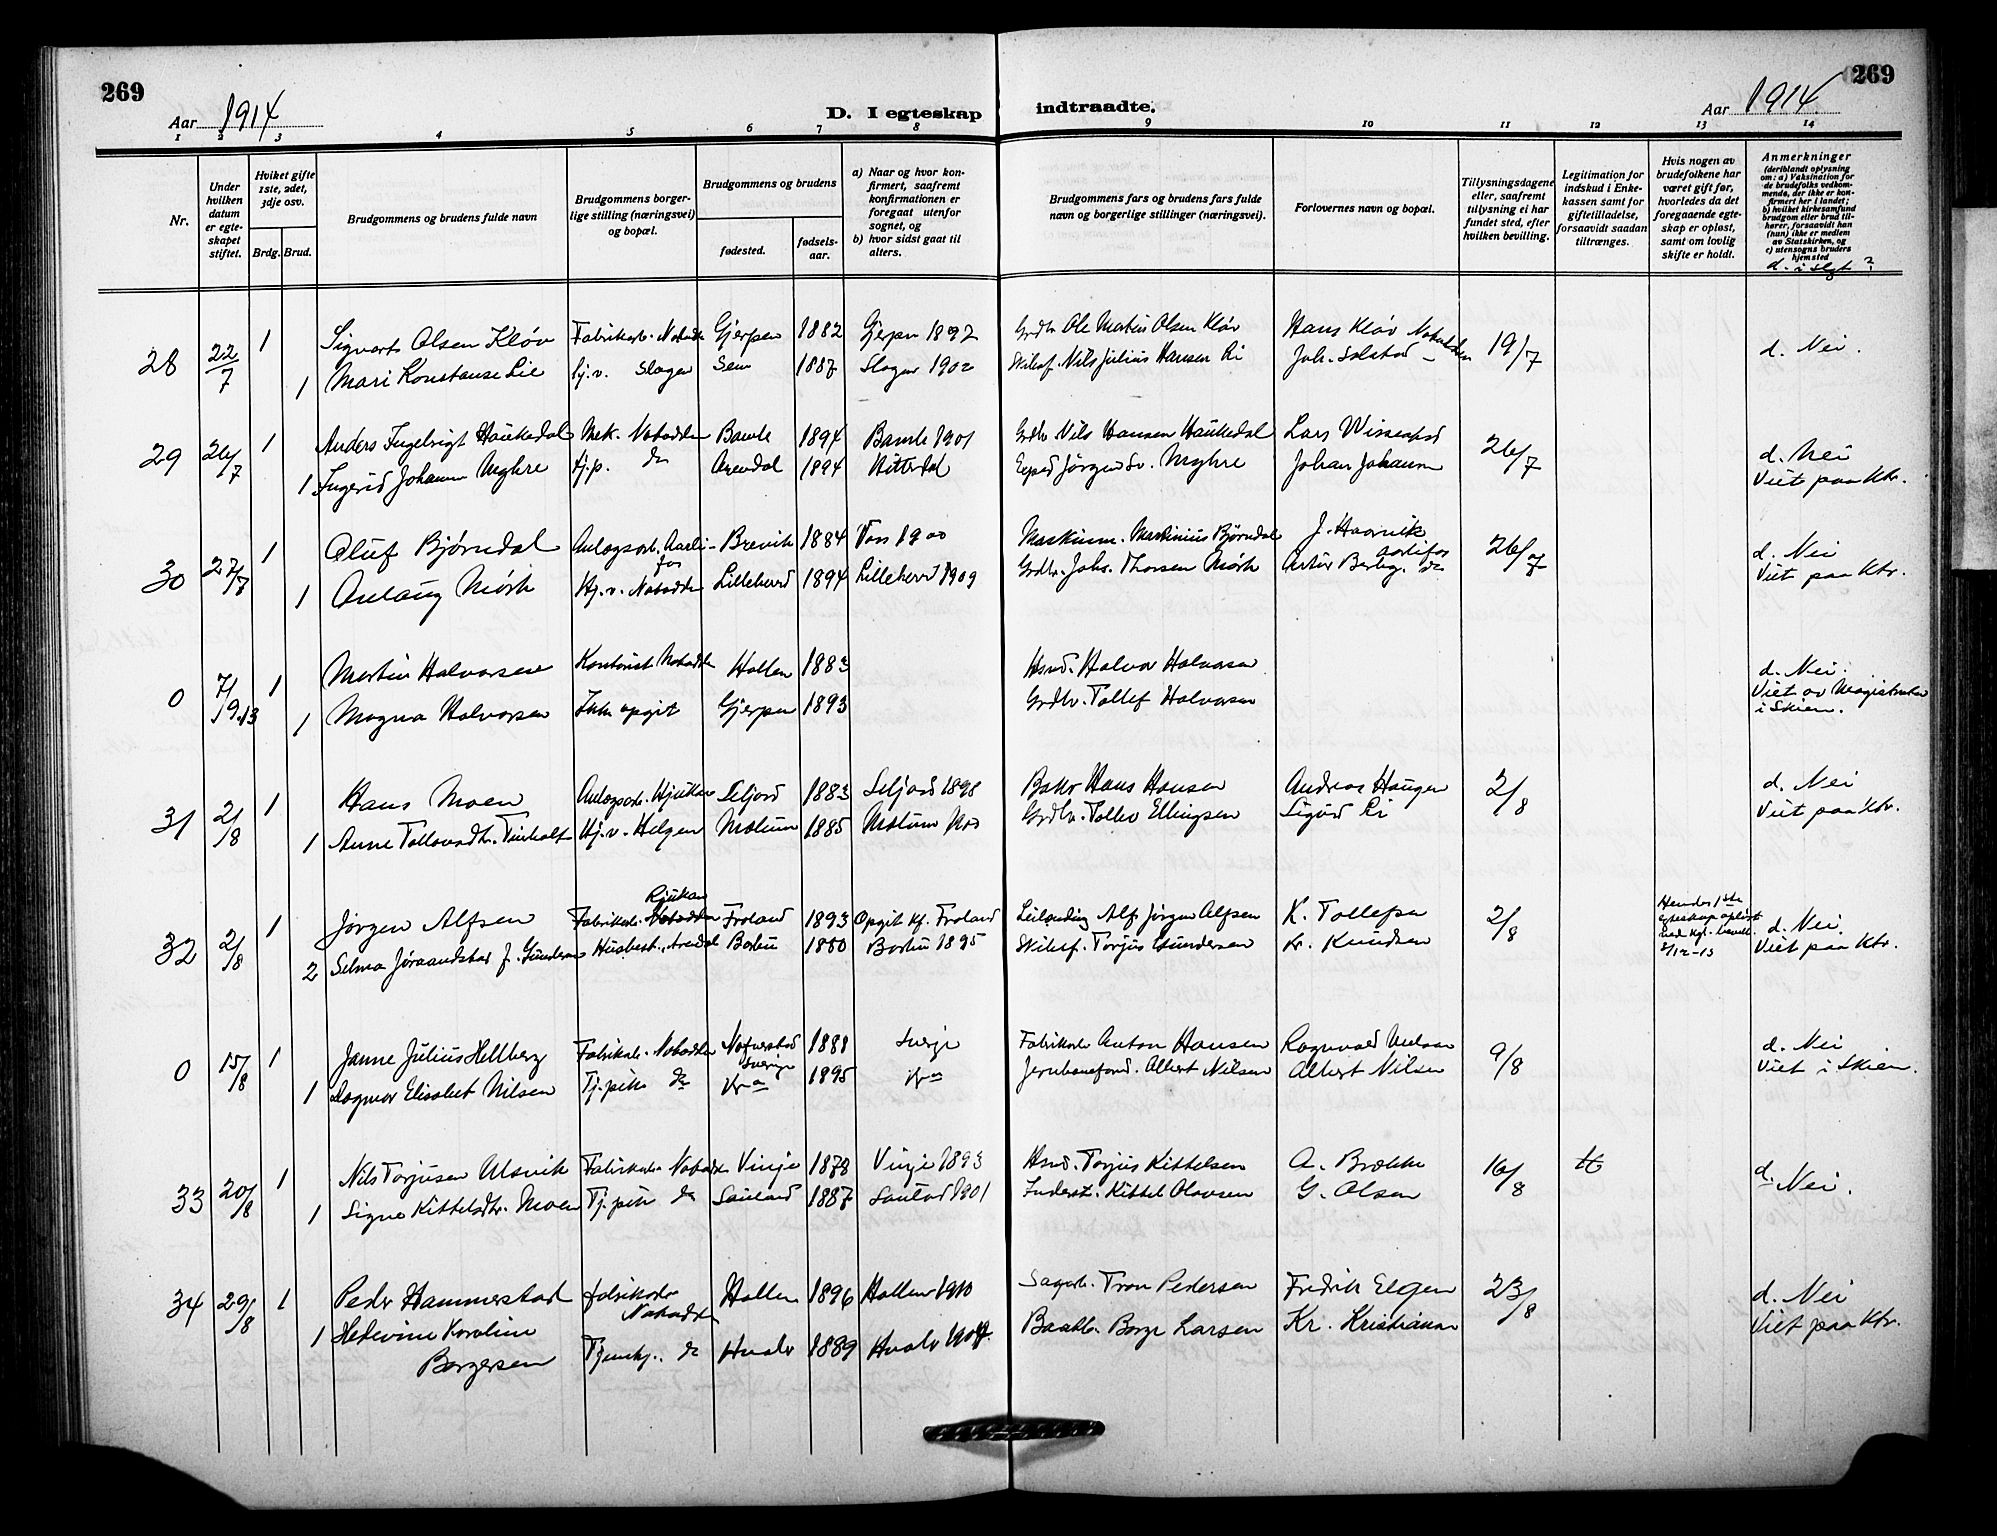 269
269
Aar 1914
D. I egteskap indtraadte.
Aar 1914.
1 2 3 4 5 6 7 8 9 10 11 12 13 14
Nr.
Under hvilken datum er egteskapet stiftet.
Hviket gifte 1ste, 2det, 3dje osv.
Brdg. Brud.
Brudgommens og brudens fulde navn
Brudgommens borgerlige stilling (næringsvei) og bopæl.
Brudgommens og brudens
fødested.
fødselsaar.
a) Naar og hvor konfirmert, saafremt konfirmationen er foregaat utenfor sognet, og
b) hvor sidst gaat til alters.
Brudgommens fars og brudens fars fulde navn og borgerlige stillinger (næringsvei).
Forlovernes navn og bopæl.
Tillysningsdagene eller, saafremt tillysning ei har fundet sted, efter hvilken bevilling.
Legitimation for indskud i Enkekassen samt for giftetilladelse, forsaavidt saadan tiltrænges.
Hvis nogen av brudefolkene har været gift før, hvorledes da det foregaaende egteskap er opløst, samt om lovlig skifte er holdt.
Anmerkninger
(deriblandt oplysning om: a) Vaksination for de brudefolks vedkommende, der ikke er konfirmert her i landet; b) hvilket kirkesamfund brudgom eller brud tilhører, forsaavidt han (hun) ikke er medlem av Statskirken, og c) utensogns bruders hjemsted
d. i slegt?
28 22/7 1 Sigvart Olsen Kløv Fabrikarb. Notodden Gjerpen 1882 Gjerpen 1897 Grdbr. Ole Matius Olsen Kløv Hans Kløv Notodden 19/7 d. Nei.
1 Mari Konstanse Lie Hj.v. Slagen Sem 1887 Slagen 1902 Nils Julius Hansen Li Joh. Solstad
29 26/7 1 Anders Ingebrigt Haukedal Mek. Notodden Bamle 1894 Bamle 1901 Grdbr. Nils Hansen Haukedal Lars 26/7 d. Nei
1 Ingerid Johanne Myhre Tj.p. do Arendal 1894 Hitterdal Jørgen Myhre Johan Johansen Viet paa Ktr.
30 27/7 1 Oluf Bjørndal Anlægsarb. Aarlifos Brevik 1884 Voss 1900 Maskinm. Martinius Bjørndal J. Haavik Aarlifos 26/7 d. Nei
1 Anlaug Mørk Hj.v. Notodden Lilleherred 1894 Lilleherred 1909 Grdbr. Johs. Thorsen Mørk Artur Berbg. do Viet paa Ktr.
0 7/9.13 1 Martin Halvorsen Kontorist Notodden Hollen 1883 Hsmd. Halvor Halvorsen d. Nei.
1 Magna Halvorsen Ikke opgit Gjerpen 1893 Grdbr. Tollef Halvorsen Viet av Magistraten i Skien.
31 2/8 1 Hans Moen Anlægsarb. Rjukan Seljord 1883 Seljord 1898 Baker Hans Hansen Andreas Haugen 2/8 d. Nei
1 Anne Tollevsdtr. Hj.v. Helgen Mælum 1885 Mælum Grdbr. Tollev Ellingsen Sigurd Li Viet paa Ktr.
32 2/8 1 Jørgen Alfsen Fabrikarb. Notodden Rjukan Froland 1893 Opgit kf. Froland Leilænding Alf Jørgen Alfsen K. Tollefsen 2/8 Hendes 1ste egteskap opløst ved kgl. bevill. 5/12-13 d. Nei.
2 Selma Jøraandstad f. Gundersen Husbest. Arendal Borhu 1880 Borhu 1895 Torjus Gundersen Kr. Knudsen Viet paa Ktr.
0 15/8 1 Janne Julius Hellberg Fabrikarb. Notodden Sverige 1888 Sverige Fabrikarb Anton Hansen Ragnvald 9/8 d. Nei
1 Dagmar Elisabet Nilsen Tj.pike do Kra 1895 Kra Jernbaneform. Albert Nilsen Albert Nilsen Viet i Skien.
33 20/8 1 Nils Torjusen Ulsvik Fabrikarb Notodden Vinje 1878 Vinje 1893 Hsmd. Torjus Kittelsen A. Brække 16/8 d. Nei.
1 Signe Kittelsdtr. Moen Tj.pike do Sauland 1887 Sauland 1901 Inderst. Kittel Olavsen G. Olsen
34 29/8 1 Peder Hammerstad Fabrikarb Notodden Hollen 1896 Hollen 1910 Sagarb. Tron Pedersen Fredrik Elgen 23/8 d. Nei
1 Hedevine Karoline Borgersen Tjenestp. do Hvaler 1889 Hvaler 1904. Borge Larsen Kr. Kristiansen Viet paa Ktr.